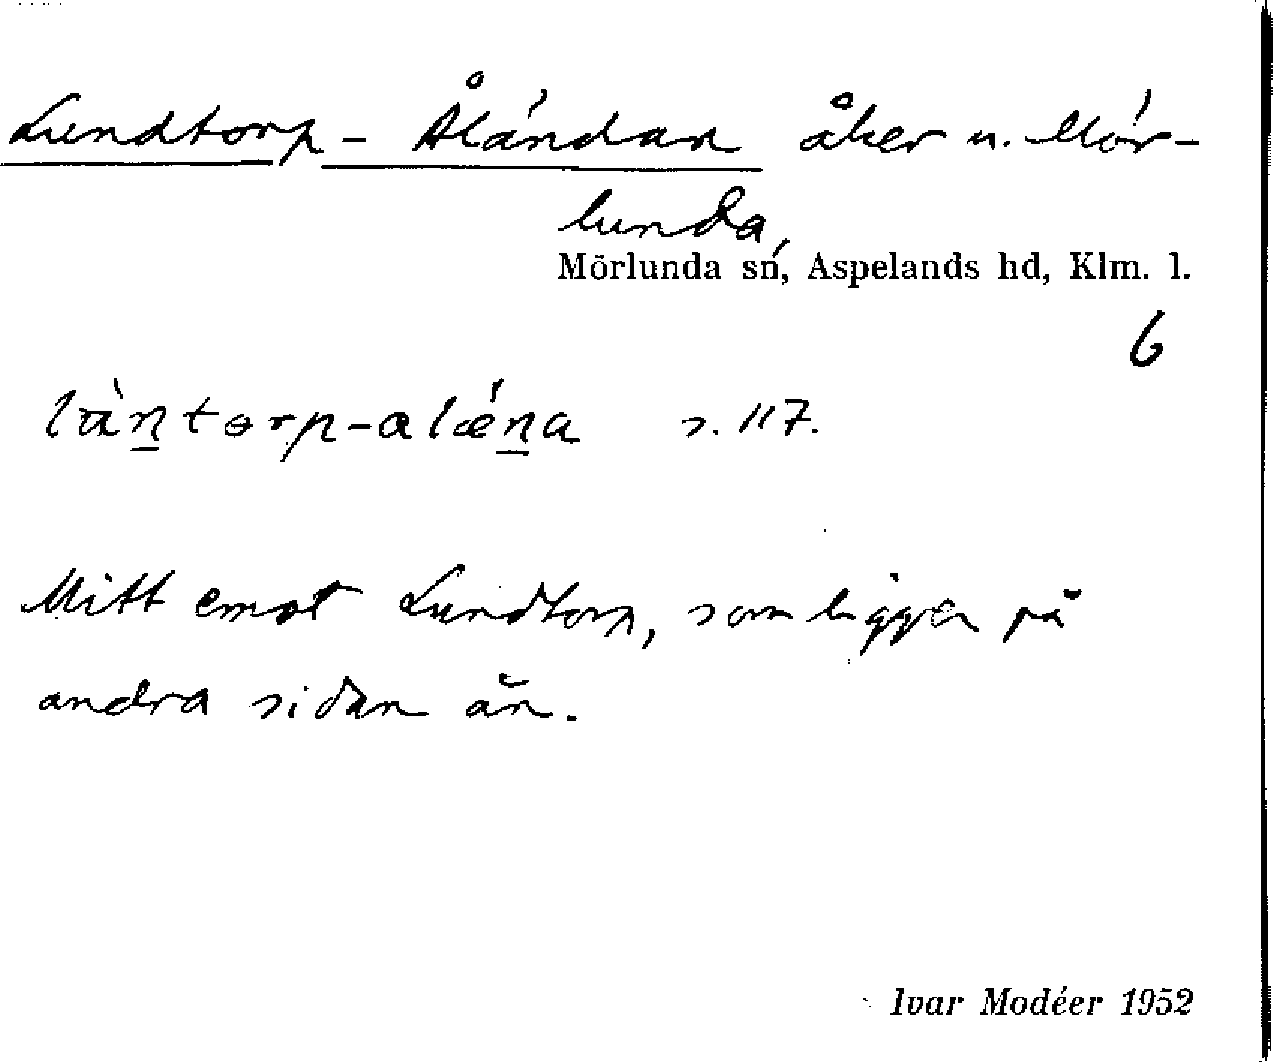 Lundtorp-Åländan åker u. Mör-
lunda,
Mörlunda sn, Aspelands hd, Klm. l.
6
s. 117.
Mitt emot Lundtorp, som ligger på
andra sidan ån.
Ivar Modéer 1952